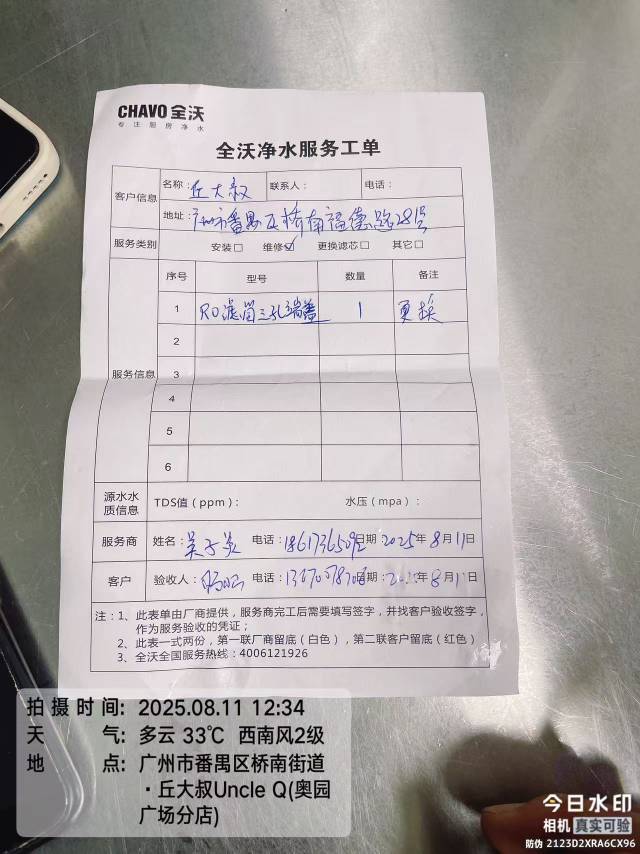 CHAVO 全沃
专注厨房净水
全沃净水服务工单
客户信息
名称：丘大叔 联系人： 电话：
地址：广州市番禺区桥南福德路28号
服务类别 安装□ 维修☑ 更换滤芯□ 其它□
服务信息
序号 型号 数量 备注
1 RO滤筒三孔端盖 1 更换
2
3
4
5
6
源水水质信息 TDS值（ppm）： 水压（mpa）：
服务商 姓名： 电话： 日期：2025年8月11日
客户 验收人： 电话： 日期： 年8月11日
注：1、此表单由厂商提供，服务商完工后需要填写签字，并找客户验收签字，
作为服务验收的凭证；
2、此表一式两份，第一联厂商留底（白色），第二联客户留底（红色）
3、全沃全国服务热线：4006121926
拍摄时间：2025.08.11 12:34
天 气：多云 33℃ 西南风2级
地 点：广州市番禺区桥南街道
·丘大叔Uncle Q(奥园
广场分店)
今日水印
相机 真实可验
防伪 2123D2XRA6CX96